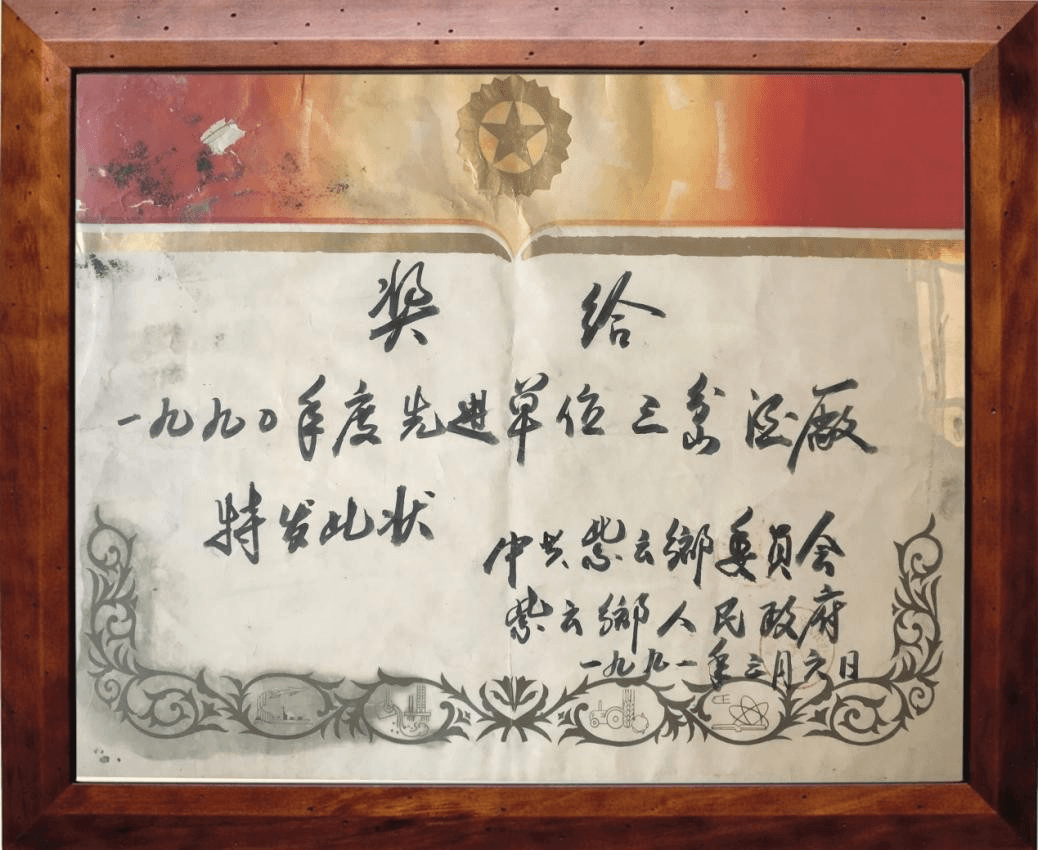 奖给
一九九〇年度先进单位三岔酒厰
特发此状
中共紫云鄉委員会
紫云鄉人民政府
一九九一年三月六日
CE